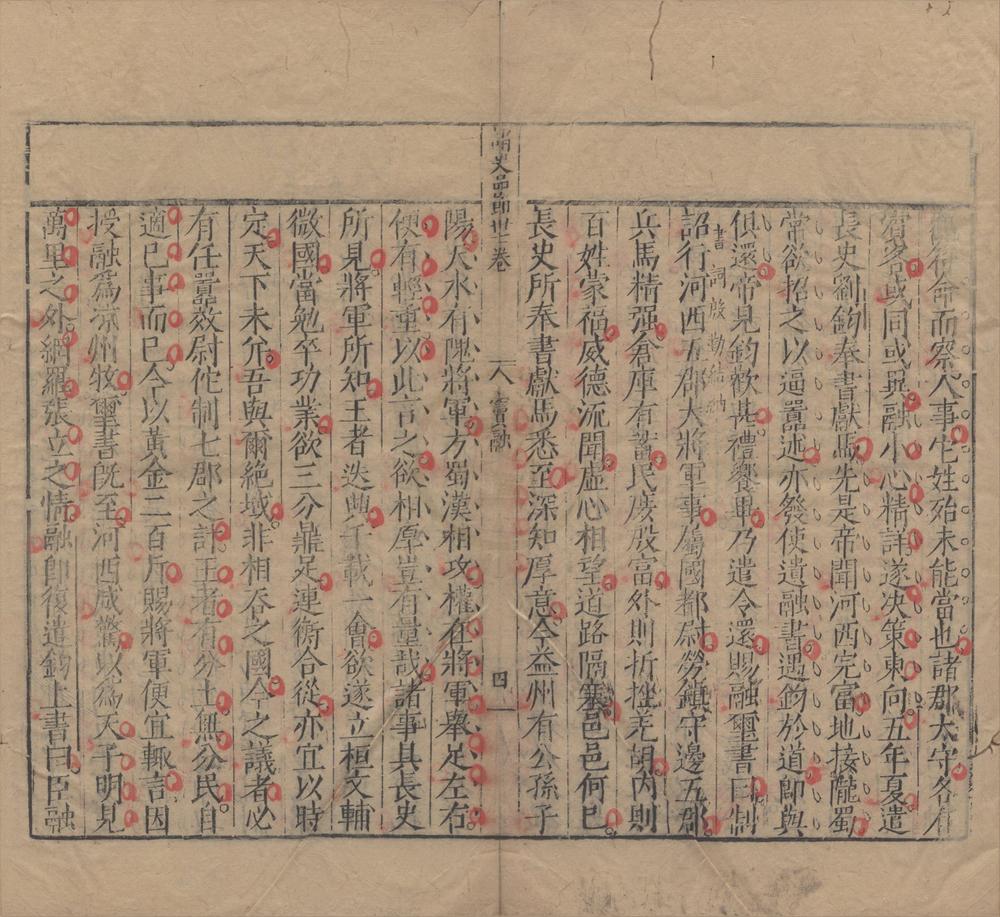 符命而察人事它姓殆未能當也諸郡太守各有
賓客或同或異融小心精詳遂决策東向五年夏遣
長史劉鈞奉書獻馬先是帝聞河西完富地接隴蜀
常欲招之以逼囂述亦發使遺融書遇鈞於道即與
俱還帝見鈞歡甚禮饗畢乃遣令還賜融璽書曰制
書詞殷勤結納
詔行河西五郡大將軍事屬國都尉勞鎮守邊五郡
兵馬精强倉庫有蓄民庶殷富外則折挫羌胡内則
百姓蒙福威德流聞虚心相望道路隔塞邑邑何已
長史所奉書獻馬悉至深知厚意今益州有公孫子
史品 世二卷
八 竇融
四
陽天水有隗將軍方蜀漢相攻權在將軍舉足左右
便有輕重以此言之欲相厚豈有量哉諸事具長史
所見將軍所知王者迭興千載一會欲遂立桓文輔
微國當勉卒功業欲三分鼎足連衡合從亦宜以時
定天下未并吾與爾絶域非相吞之國今之議者必
有任囂效尉佗制七郡之計王者有分土無分民自
適已事而已今以黃金二百斤賜將軍便宜輒言因
授融爲凉州牧璽書旣至河西咸驚以爲天子明見
萬里之外網羅張立之情融即復遣鈞上書曰臣融